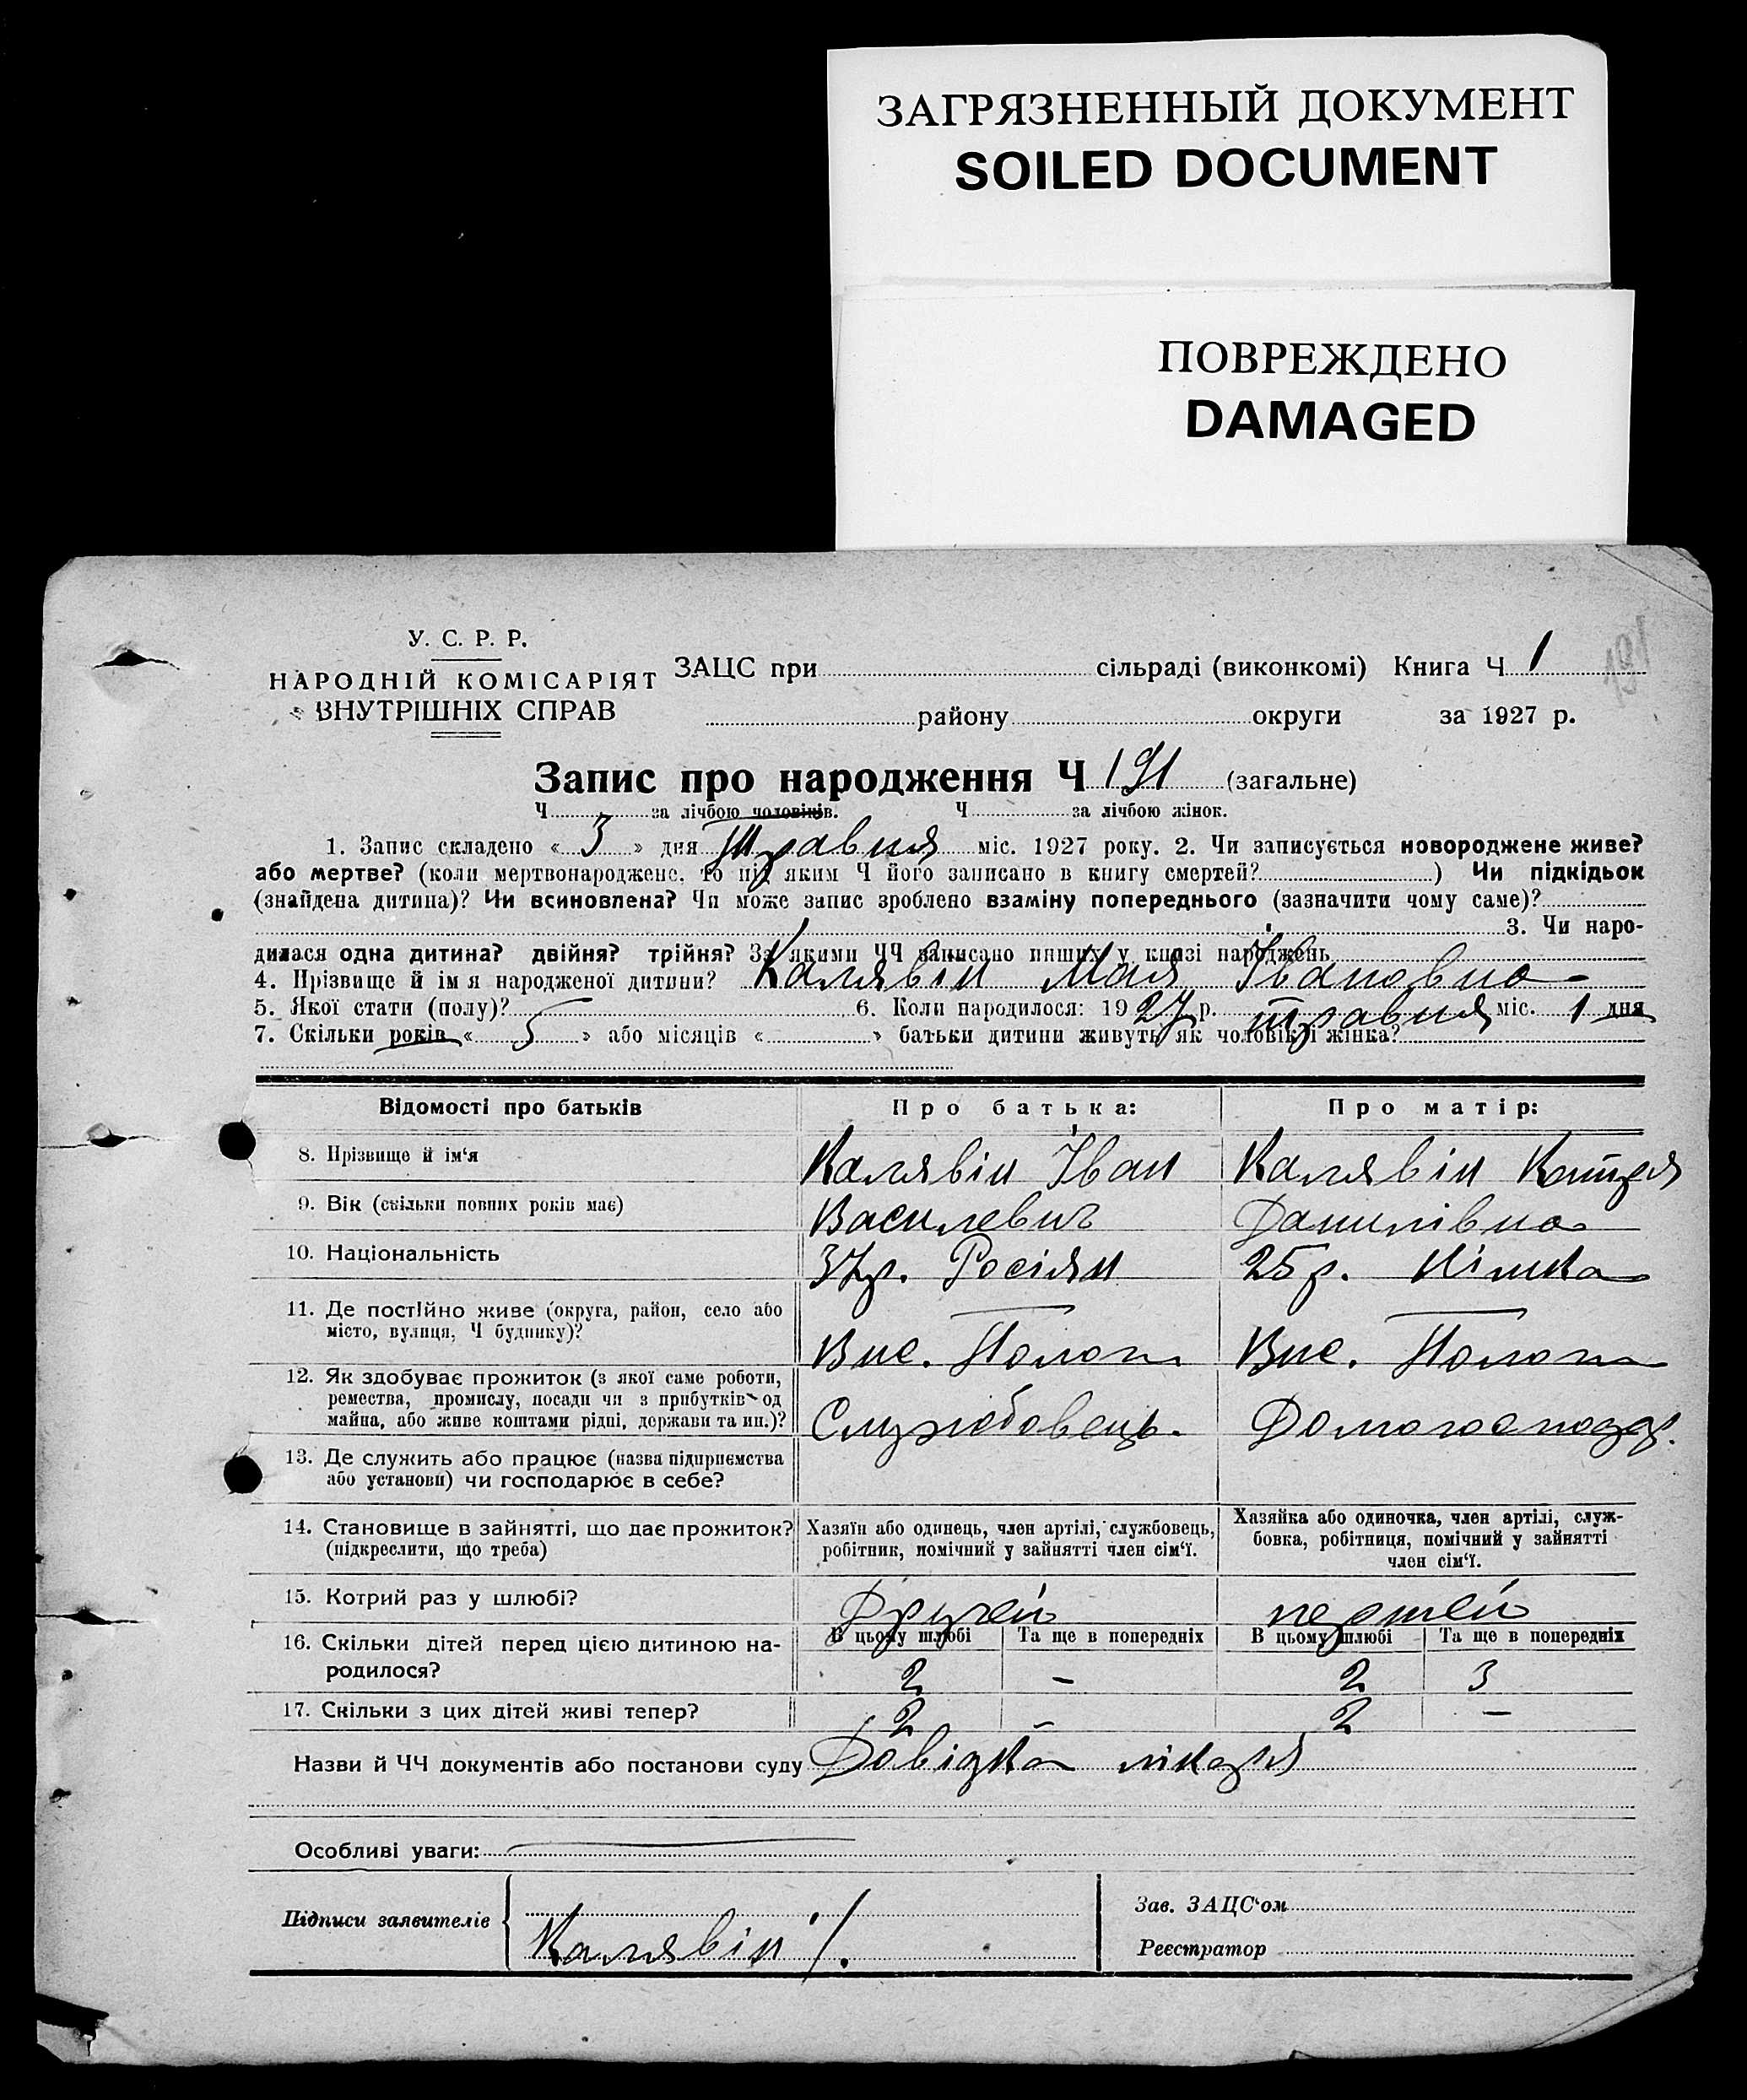 ЗАГРЯЗНЕННЫЙ ДОКУМЕНТ
SOILED DOCUMENT
ПОВРЕЖДЕНО
DAMAGED
191
У. С. Р. Р.
НАРОДНІЙ КОМІСАРІЯТ
ВНУТРІШНІХ СПРАВ
ЗАЦС при сільраді (виконкомі) Книга Ч 1
району округи за 1927 р.
Запис про народження Ч 191 (загальне)
Ч за лічбою чоловіків. Ч за лічбою жінок.
1. Запис складено « 3 » дня Травня міс. 1927 року. 2. Чи записується новороджене живе?
або мертве? (коли мертвонароджене, то під яким Ч його записано в книгу смертей? ) Чи підкідьок
(знайдена дитина)? Чи всиновлена? Чи може запис зроблено взаміну попереднього (зазначити чому саме)?
3. Чи наро-
дилася одна дитина? двійня? трійня? За якими ЧЧ записано инших у книзі народжень
4. Прізвище й ім я народженої дитини? Калявін Мая Івановна
5. Якої стати (полу)? 6. Коли народилося: 1927 р. травня міс. 1 дня
7. Скільки років « 5 » або місяців « » батьки дитини живуть як чоловік і жінка?
Відомості про батьків Про батька: Про матір:
8. Прізвище й ім'я Калявін Іван Калявін Катря
9. Вік (скільки повних років має) Василевич Данилівна
10. Національність 37р. Росіян 25р. Німка
11. Де постійно живе (округа, район, село або
місто, вулиця, Ч будинку)? Вис. Пологи Вис. Пологи
12. Як здобуває прожиток (з якої саме роботи,
ремества, промислу, посади чи з прибутків од
майна, або живе коштами рідні, держави та ин.)? Службовець. Домогосподар.
13. Де служить або працює (назва підприємства
або установи) чи господарює в себе?
14. Становище в зайнятті, що дає прожиток?
(підкреслити, що треба)
Хазяїн або одинець, член артілі, службовець,
робітник, помічний у зайнятті член сім'ї.
Хазяйка або одиночка, член артілі, служ-
бовка, робітниця, помічний у зайнятті
член сім'ї.
15. Котрий раз у шлюбі? Другей першей
16. Скільки дітей перед цією дитиною на-
родилося?
В цьому шлюбі Та ще в попередніх В цьому шлюбі Та ще в попередніх
2 - 2 3
17. Скільки з цих дітей живі тепер? 2 - 2 -
Назви й ЧЧ документів або постанови суду Довідка лікаря
Особливі уваги:
Підписи заявителів Калявін І.
Зав. ЗАЦС'ом
Реєстратор